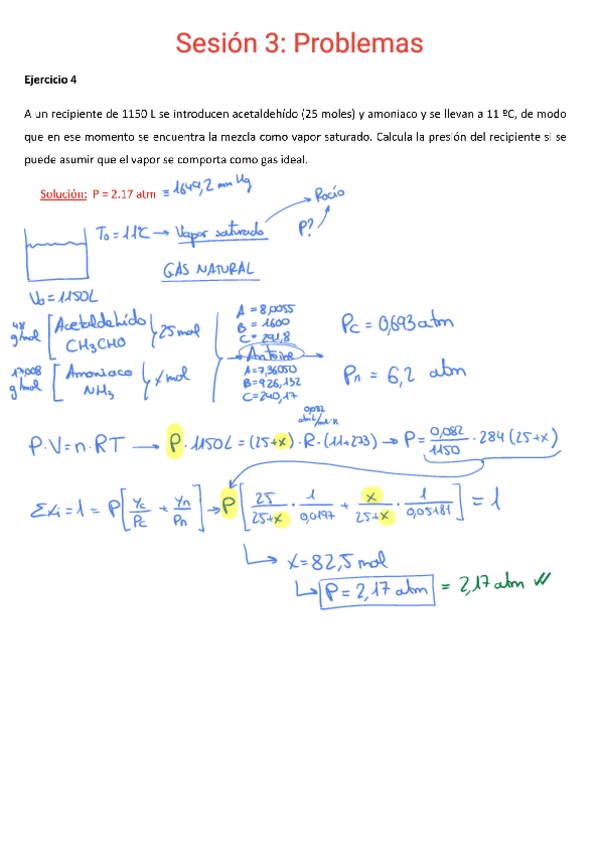 Sesión 3: Problemas
Ejercicio 4
A un recipiente de 1150 L se introducen acetaldehído (25 moles) y amoniaco y se llevan a 11 ºC, de modo
que en ese momento se encuentra la mezcla como vapor saturado. Calcula la presión del recipiente si se
puede asumir que el vapor se comporta como gas ideal.
Solución: P = 2.17 atm ≡ 1649,2 mm Hg
Rocío
T₀ = 11ºC → Vapor saturado P?
GAS NATURAL
V₀ = 1150L
48 g/mol [Acetaldehído CH3CHO } 25 mol
A = 8,0055
B = 1600
C = 291,8
Pc = 0,693 atm
Antoine
17,008 g/mol [Amoniaco NH3 } x mol
A=7,36050
B=926,132
C=240,17
Pn = 6,2 atm
0,082 atm·L/mol·K
P·V=n·RT → P·1150L = (25+x)·R·(11+273) → P = 0,082/1150 · 284 (25+x)
Σxi = 1 = P[yc/Pc + yn/Pn] → P[25/25+x · 1/0,0197 + x/25+x · 1/0,05181] = 1
↳ x = 82,5 mol
↳ P = 2,17 atm = 2,17 atm ✓✓